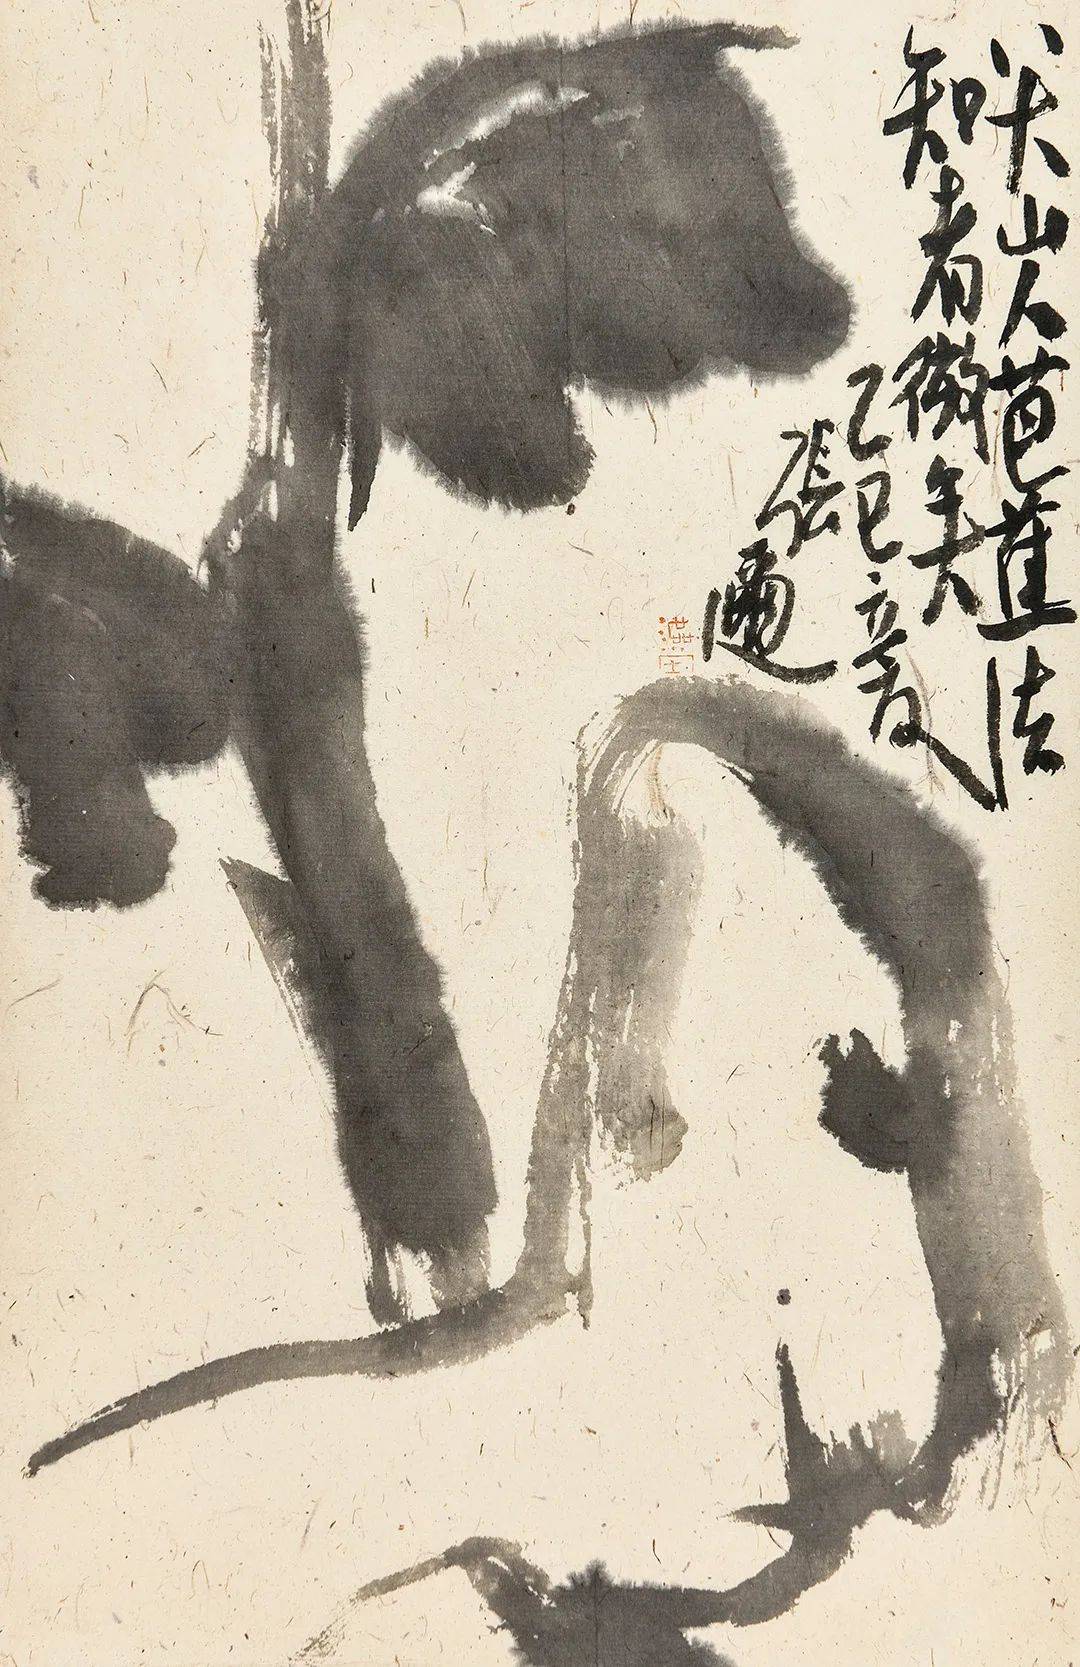 八大山人芭蕉法
知者微矣
乙巳立夏
張